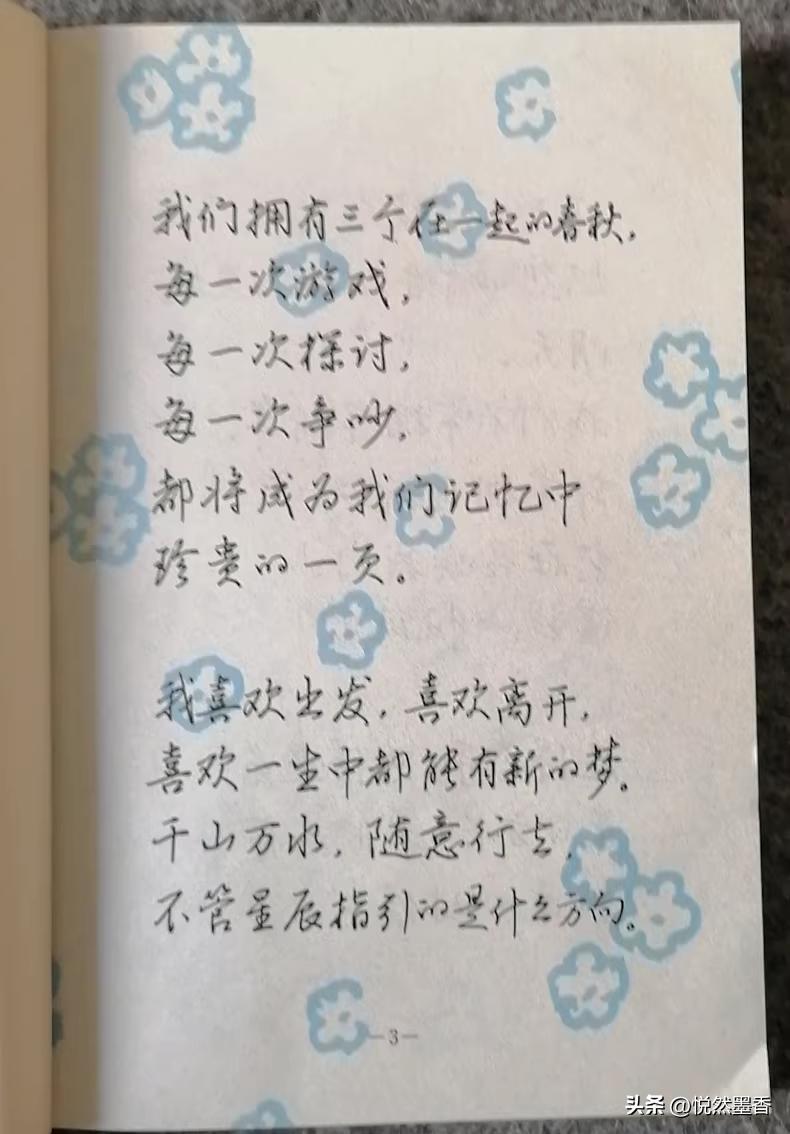 我们拥有三个在一起的春秋，
每一次游戏，
每一次探讨，
每一次争吵，
都将成为我们记忆中
珍贵的一页。
我喜欢出发，喜欢离开，
喜欢一生中都能有新的梦。
千山万水，随意行去，
不管星辰指引的是什么方向。
—3—
头条 @悦然墨香